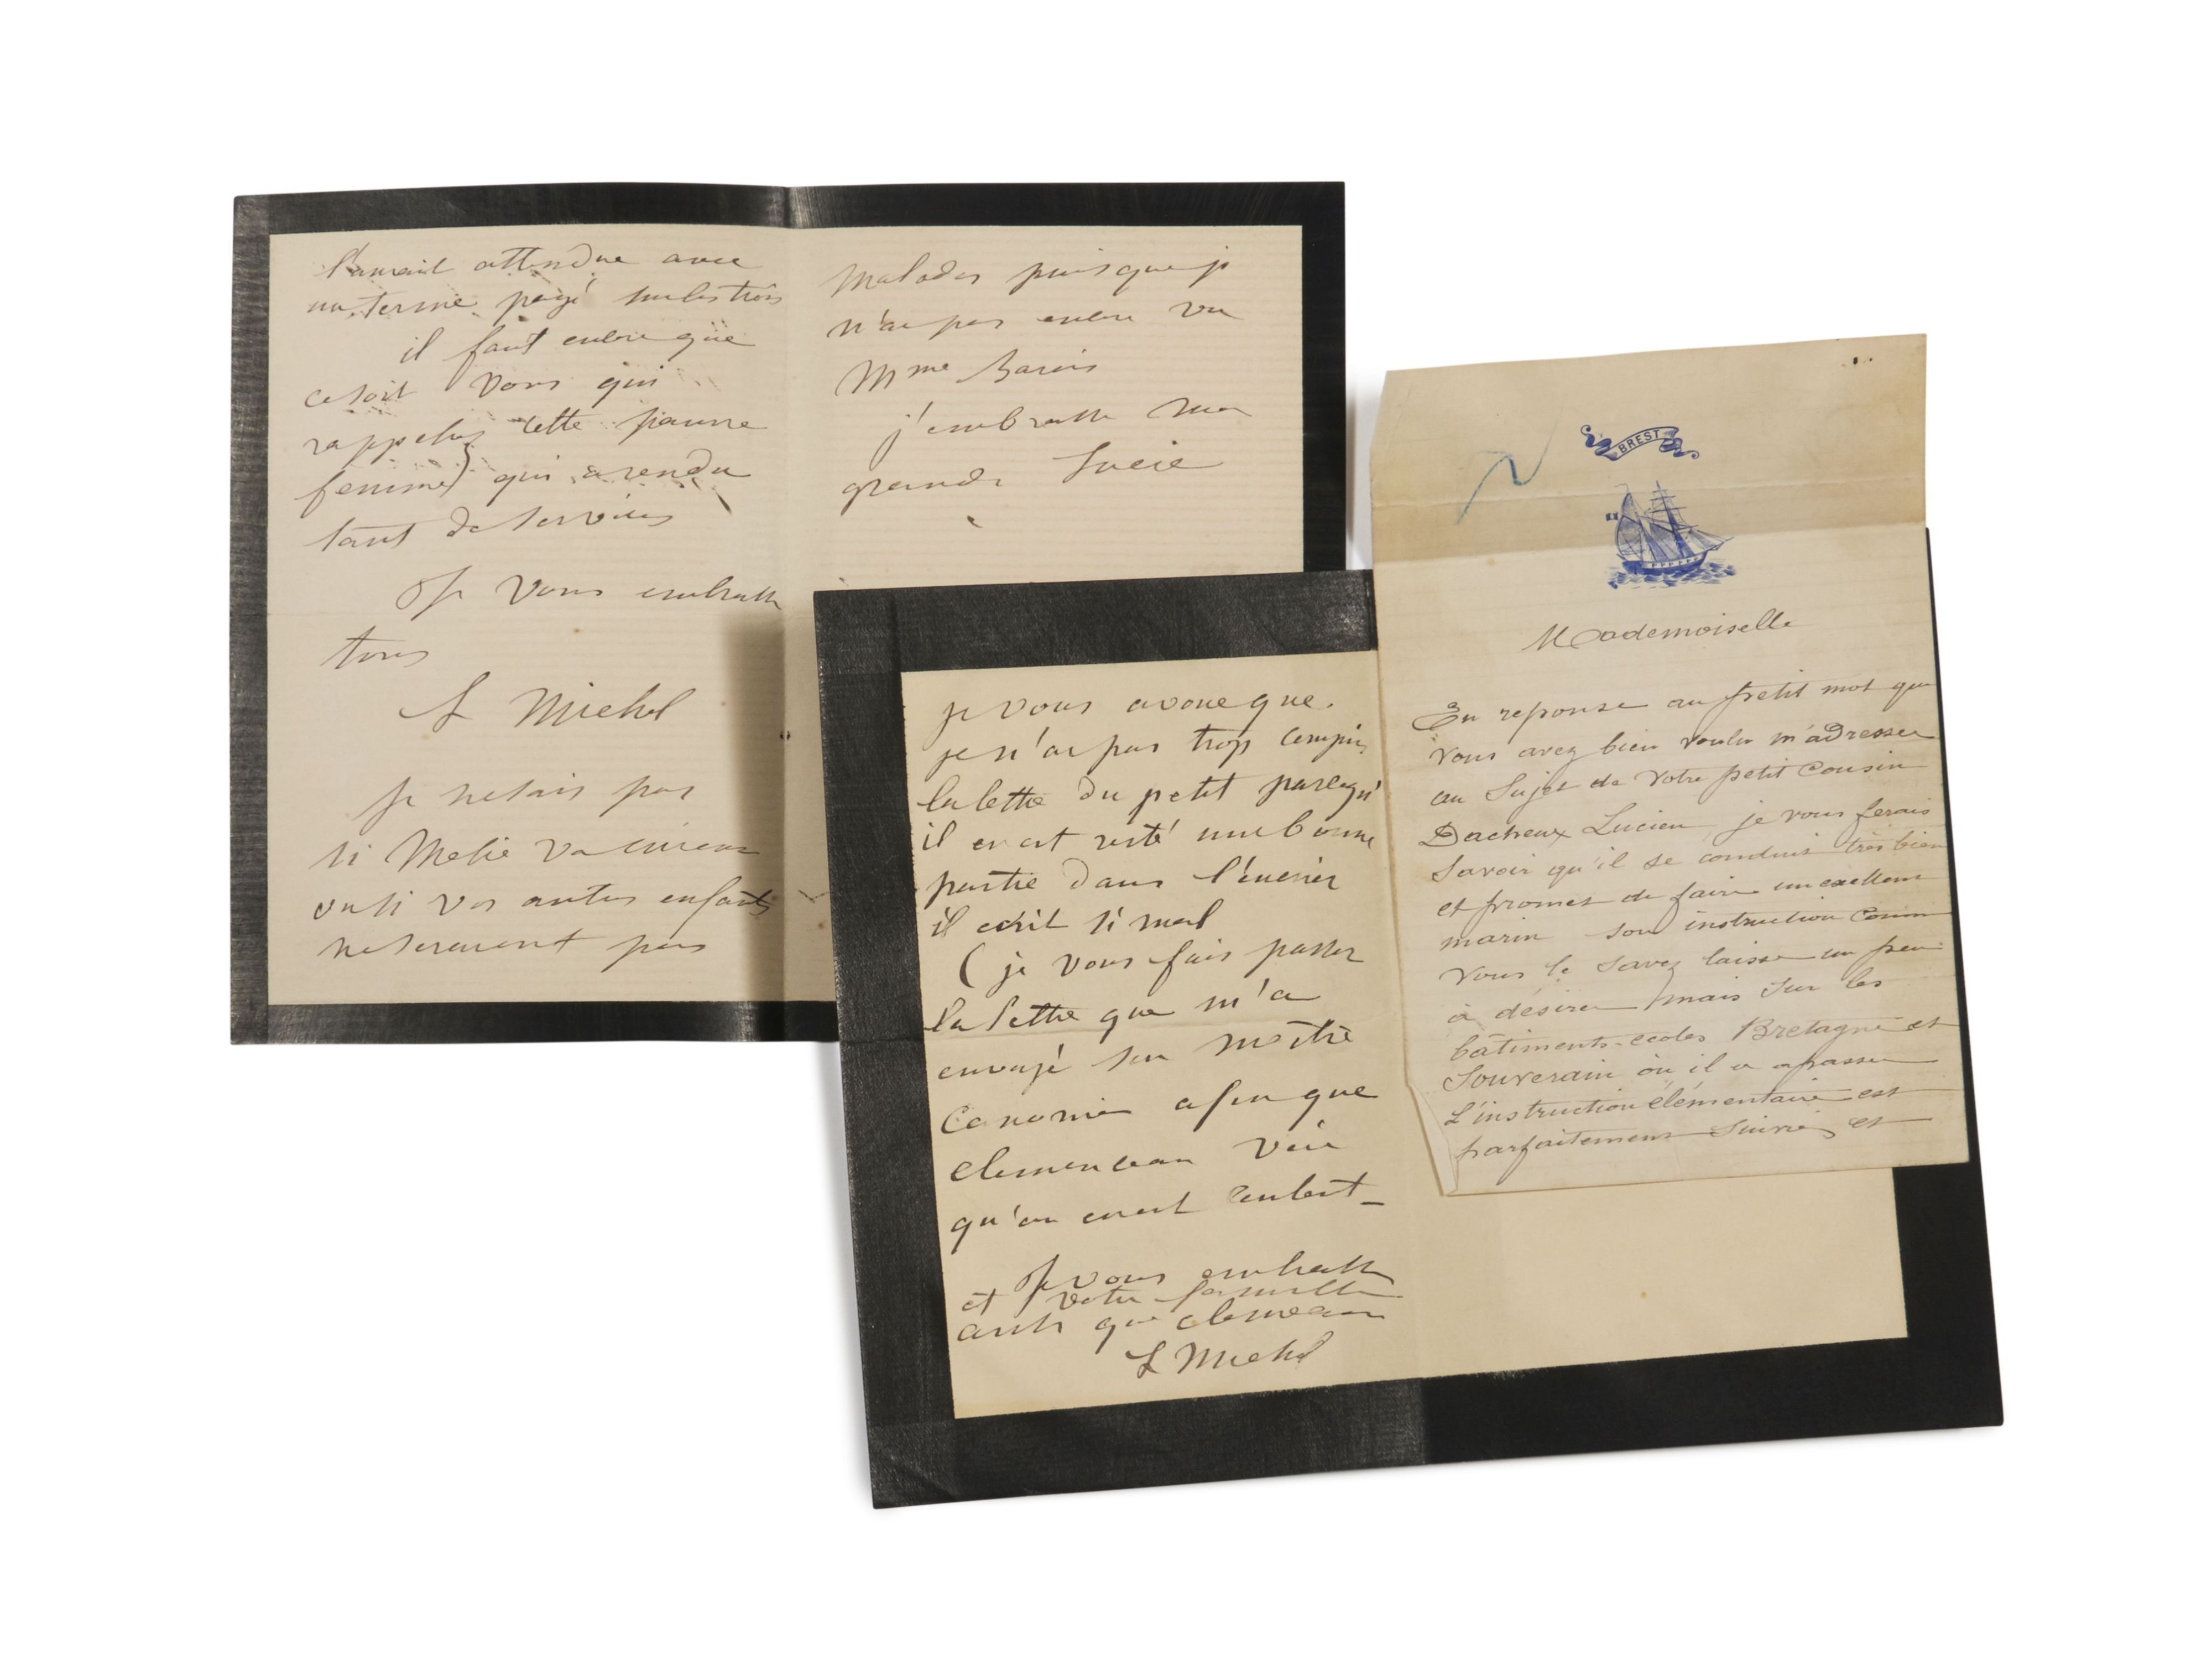 l'aurait attendue avec
un terme payé sur les trois
il faut encore que
ce soit vous qui
rappeliez cette pauvre
femme qui a rendu
tant de services
Je vous embrasse
tous
L Michel
Je ne sais pas
si Melie va mieux
ou si vos autres enfants
ne seraient pas
malades puisque je
n'ai pas encore vu
Mme
j'embrasse ma
grande Lucie
je vous avoue que
je n'ai pas trop compris
la lettre du petit parcequ'
il en est resté une bonne
partie dans l'encrier
il ecrit si mal
( je vous fais passer
la lettre que m'a
envoyé son maître
Canonier afin que
Clemenceau voie
qu'on en est content_
Je vous embrasse
et votre famille
ainsi que Clemenceau
L Michel
BREST
Mademoiselle
En reponse au petit mot que
vous avez bien voulu m'adresser
au Sujet de votre petit Cousin
Dacheux Lucien je vous ferais
Savoir qu'il se conduit très bien
et promet de faire un excellent
marin son instruction Comme
vous le savez laisse un peu
à désirer mais sur les
bâtiments-ecoles Bretagne et
Souverain où il a a passer
L'instruction élémentaire est
parfaitement Suivie, et